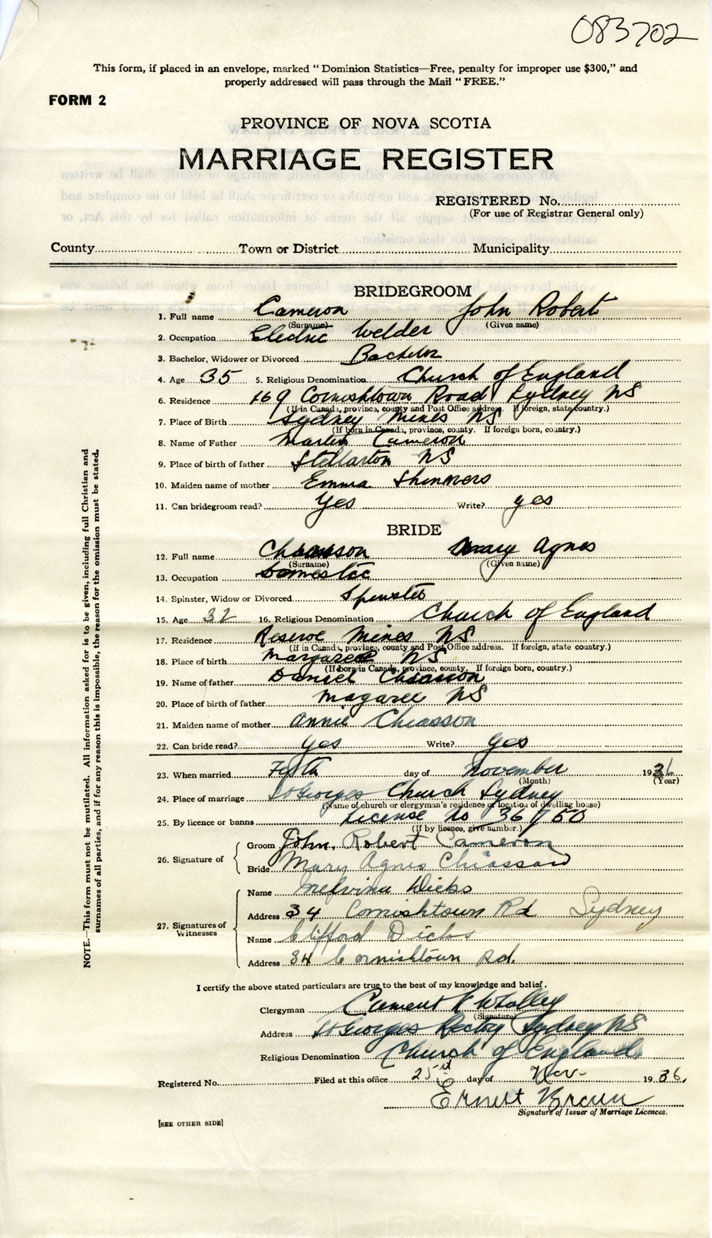 083702
This form, if placed in an envelope, marked "Dominion Statistics—Free, penalty for improper use $300," and
properly addressed will pass through the Mail "FREE."
FORM 2
PROVINCE OF NOVA SCOTIA
MARRIAGE REGISTER
REGISTERED No.
(For use of Registrar General only)
County Town or District Municipality
BRIDEGROOM
1. Full name Cameron John Robert
(Surname) (Given name)
2. Occupation Electric Welder
3. Bachelor, Widower or Divorced Bachelor
4. Age 35 5. Religious Denomination Church of England
6. Residence 169 Cornishtown Road Sydney NS
(If in Canada, province, county and Post Office address. If foreign, state country.)
7. Place of Birth Sydney Mines NS
(If born in Canada, province, county. If foreign born, country.)
8. Name of Father Martin Cameron
9. Place of birth of father Stellarton NS
10. Maiden name of mother Emma Shimmers
11. Can bridegroom read? Yes Write? yes
BRIDE
12. Full name Chiasson Mary Agnes
(Surname) (Given name)
13. Occupation Domestic
14. Spinster, Widow or Divorced Spinster
15. Age 32 16. Religious Denomination Church of England
17. Residence Reserve Mines NS
(If in Canada, province, county and Post Office address. If foreign, state country.)
18. Place of birth Margaree NS
(If born in Canada, province, county. If foreign born, country.)
19. Name of father Daniel Chiasson
20. Place of birth of father Magaree NS
21. Maiden name of mother Annie Chiasson
22. Can bride read? Yes Write? Yes
23. When married day of November 1936
(Month) (Year)
24. Place of marriage St Georges Church Sydney
(Name of church or clergyman's residence or location of dwelling house)
25. By licence or banns License No 36750
(If by licence, give number.)
26. Signature of
Groom John Robert Cameron
Bride Mary Agnes Chiasson
27. Signatures of Witnesses
Name Melvina Dicks
Address 34 Cornishtown Rd Sydney
Name Clifford Dicks
Address 34 Cornishtown Rd.
I certify the above stated particulars are true to the best of my knowledge and belief.
Clergyman Clement Whalley
(Signature)
Address St Georges Rectory Sydney NS
Religious Denomination Church of England
Registered No. Filed at this office 25 day of Nov. 1936.
Ernest
Signature of Issuer of Marriage Licences.
[SEE OTHER SIDE]
NOTE.—This form must not be mutilated. All information asked for is to be given, including full Christian and
surnames of all parties, and if for any reason this is impossible, the reason for the omission must be stated.